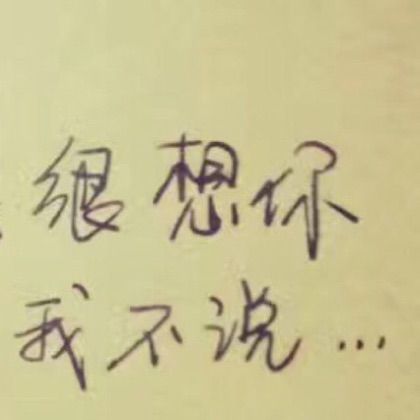 很想你
我不说...